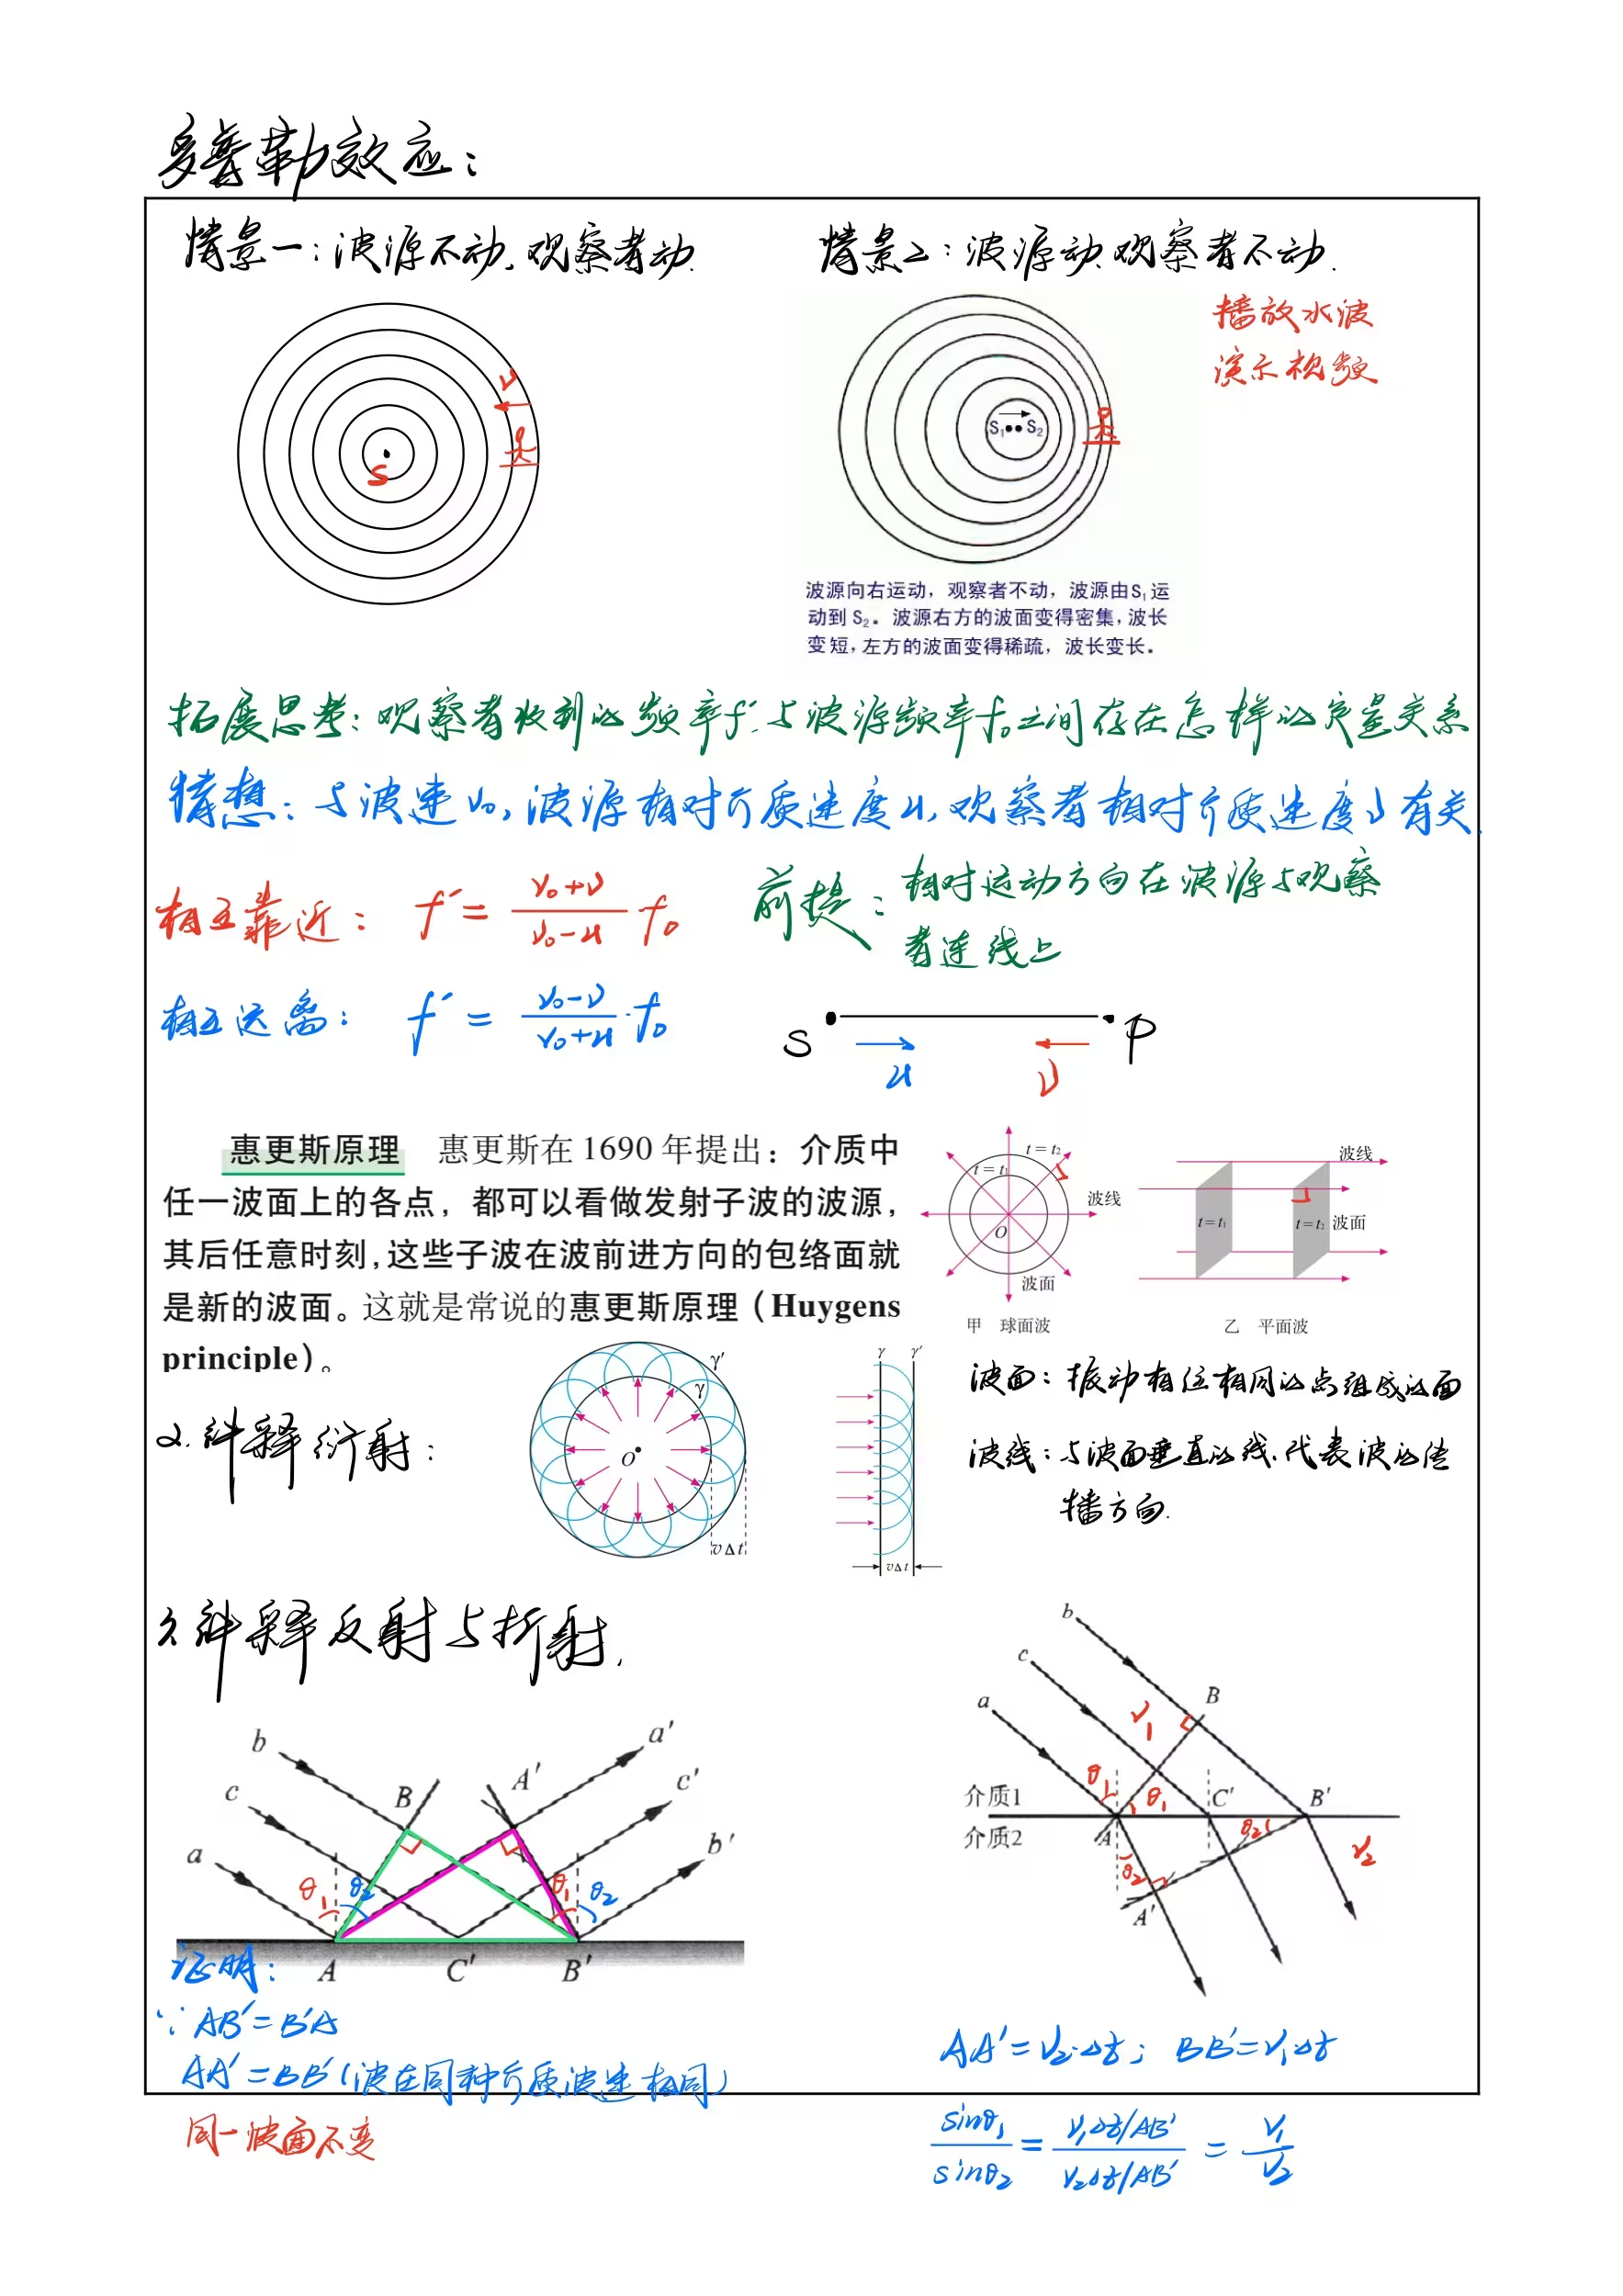 多普勒效应：
情景一：波源不动、观察者动.
情景2：波源动、观察者不动.
播放水波
演示视频
ν
S
S₁ S₂
波源向右运动，观察者不动，波源由S₁运
动到S₂。波源右方的波面变得密集，波长
变短，左方的波面变得稀疏，波长变长。
拓展思考：观察者收到的频率f′与波源频率f₀之间存在怎样的定量关系
猜想：与波速v₀，波源相对介质速度u，观察者相对介质速度ν有关.
相互靠近： f′= (v₀+ν)/(v₀-u) f₀
前提：相对运动方向在波源与观察
者连线上
相互远离： f′= (v₀-ν)/(v₀+u)·f₀
S P
u ν
惠更斯原理 惠更斯在 1690 年提出：介质中
任一波面上的各点，都可以看做发射子波的波源，
其后任意时刻，这些子波在波前进方向的包络面就
是新的波面。这就是常说的惠更斯原理（Huygens
principle）。
t=t₂
t=t₁
波线
O
波面
甲 球面波
波线
t=t₁ t=t₂ 波面
乙 平面波
γ′
γ
O
vΔt
γ γ′
vΔt
波面：振动相位相同的点组成的面
波线：与波面垂直的线、代表波的传
播方向.
2.解释衍射：
3.解释反射与折射.
b B A′ a′
c c′
a b′
θ₁ θ₂ θ₁ θ₂
A C′ B′
b
c
a B
v₁
θ₁ θ₁
介质1 C′ B′
介质2 A
θ₂ θ₂ v₂
A′
证明：
∵ AB′=B′A
AA′=BB′（波在同种介质波速相同）
同一波面不变
AA′=v₂·Δt； BB′=v₁Δt
sinθ₁/sinθ₂ = (v₁Δt/AB′)/(v₂Δt/AB′) = v₁/v₂